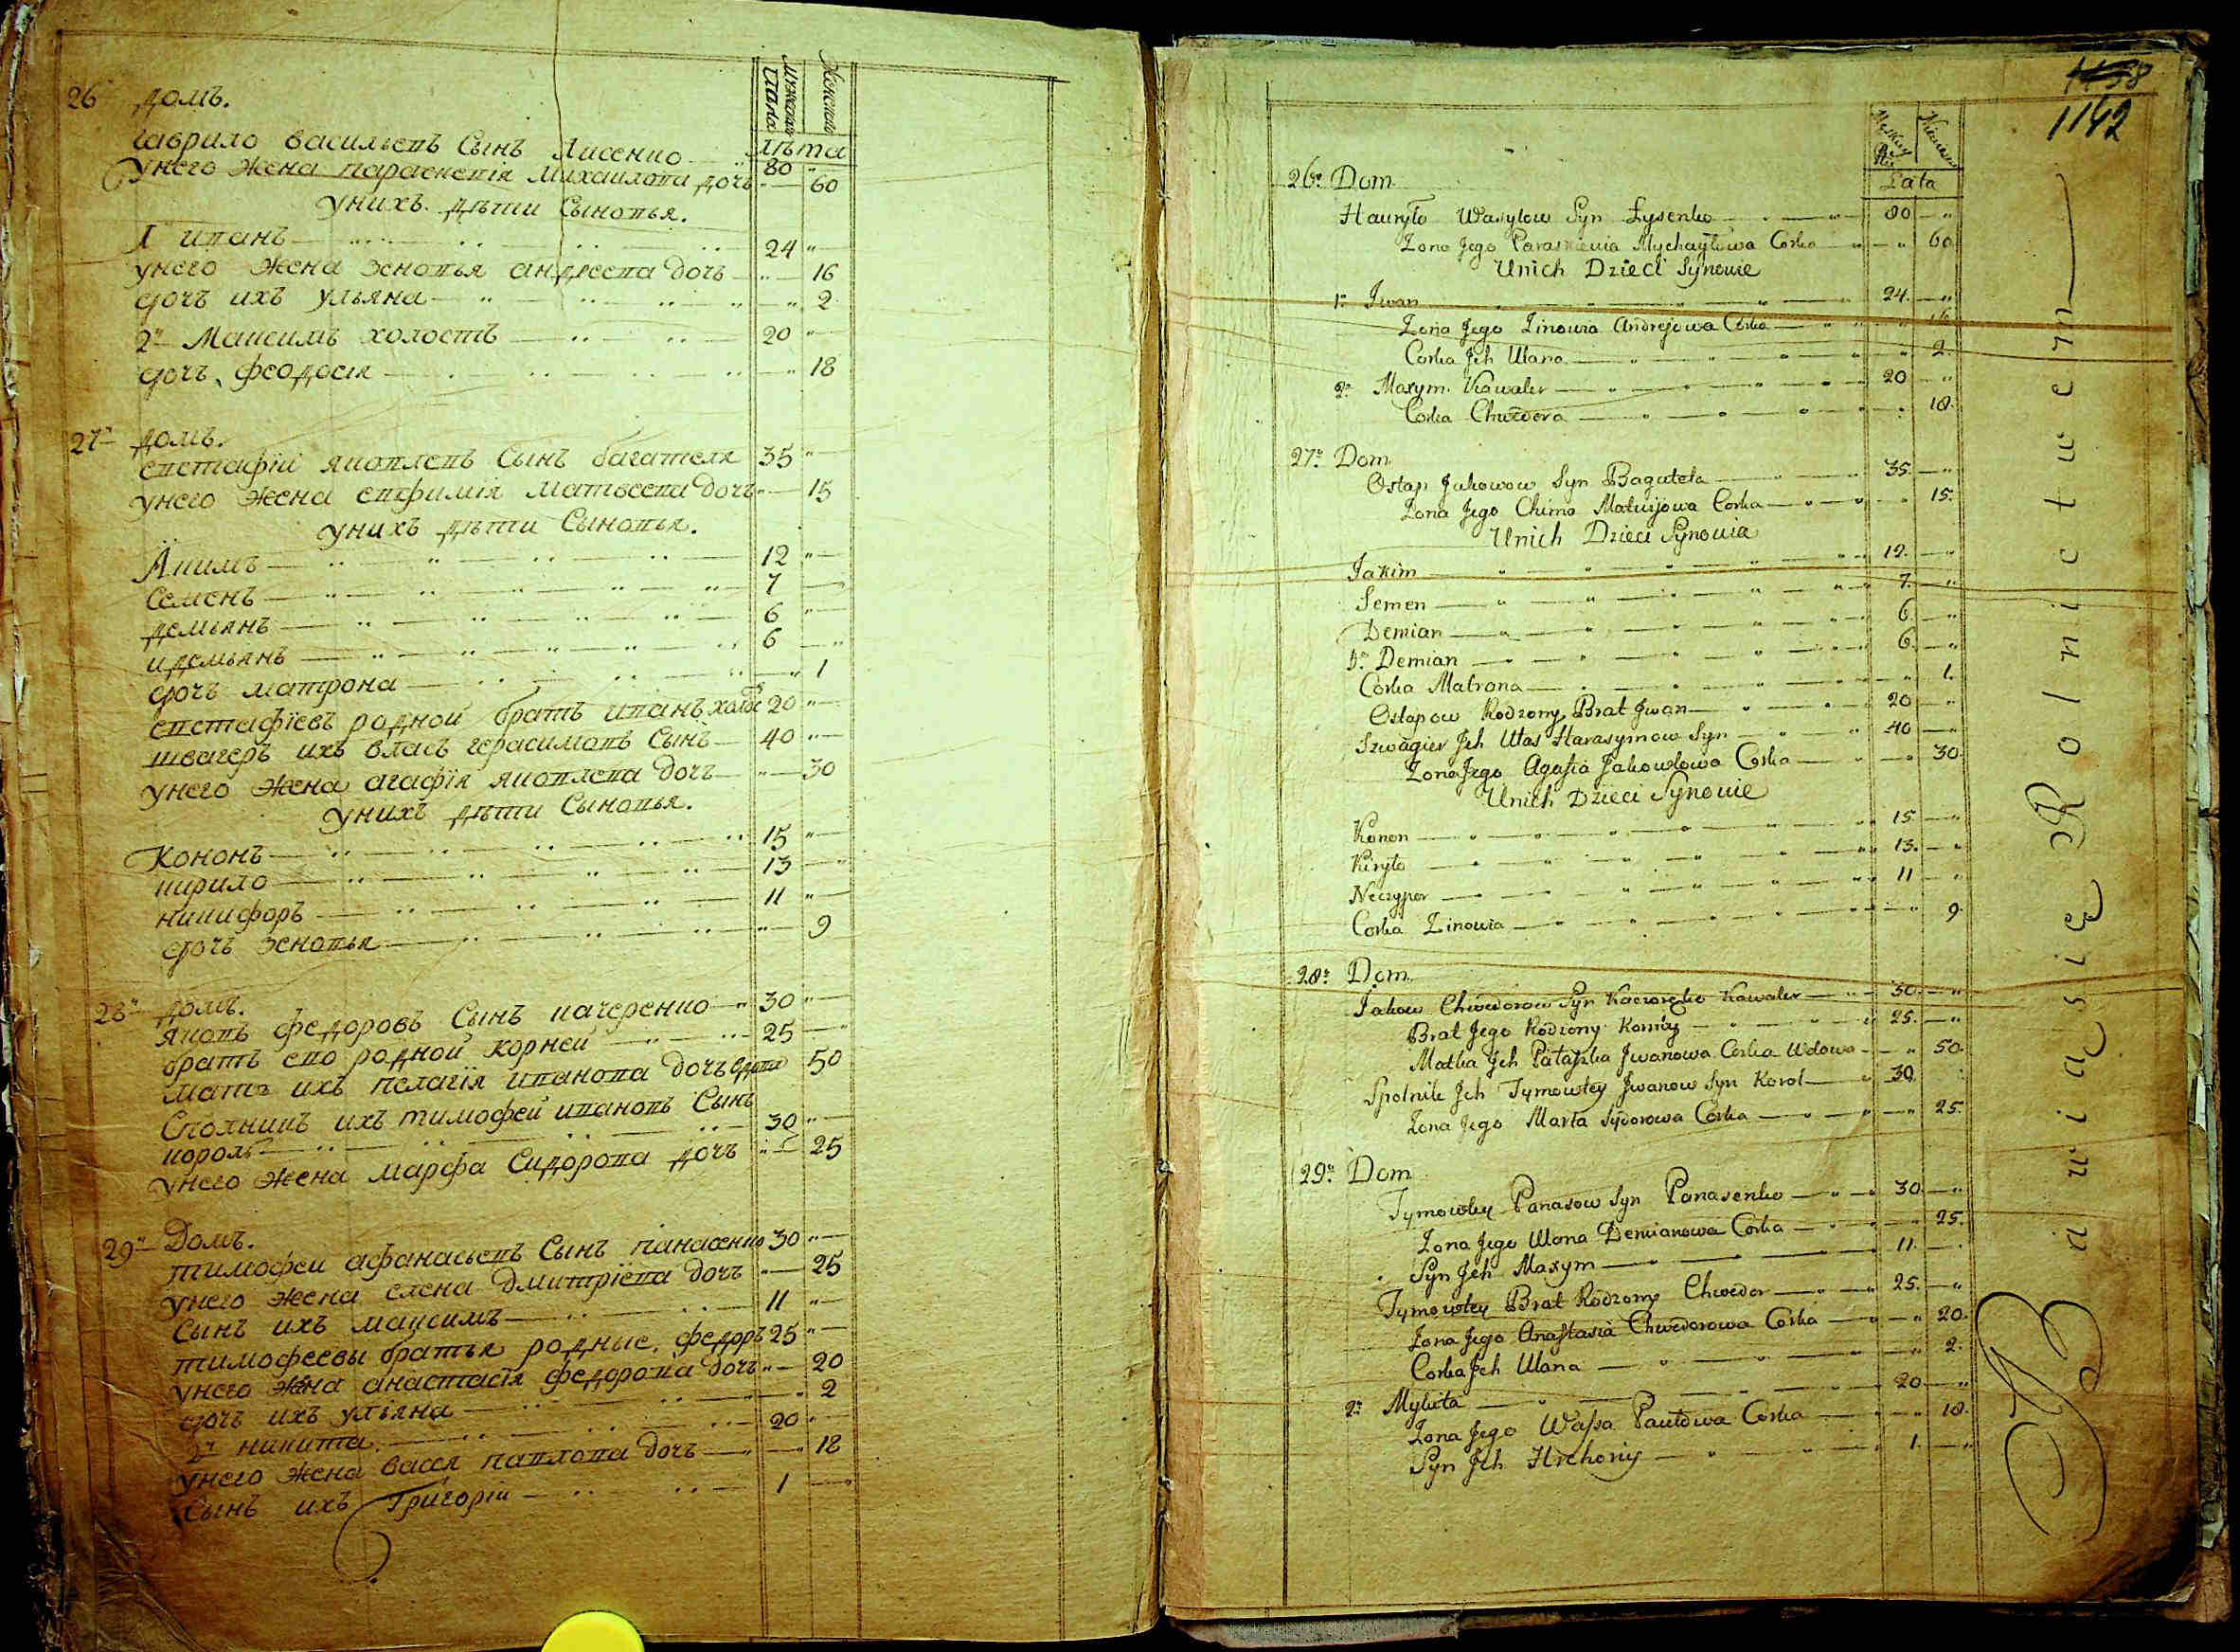 Мужеска пола
Женска
Лѣта
26 домъ.
Гаврило васильевъ Сынъ Лисенко 80
Унего жена параскевія Михаилова дочь 60
Унихъ дѣти Сыновья.
1 иванъ 24
унего жена зеновья андреева дочь 16
дочь ихъ ульяна 2
2 Максимъ холостъ 20
дочь феодосія 18
27 домъ.
евстафій яковлевъ Сынъ багателя 35
унего жена евфимія матвеева дочь 15
унихъ дѣти Сыновья.
Якимъ 12
Семенъ 7
демьянъ 6
идемьянъ 6
дочь матрона 1
евстафіевъ родной братъ иванъ холос 20
швагеръ ихъ власъ герасимовъ Сынъ 40
унего жена агафія яковлева дочь 30
унихъ дѣти Сыновья.
Кононъ 15
кирило 13
никифоръ 11
дочь зеновья 9
28 домъ.
яковъ федоровъ Сынъ качеренко 30
братъ его родной корней 25
мать ихъ пелагія иванова дочь вдова 50
Сполникъ ихъ тимофей ивановъ Сынъ
король 30
унего жена марфа Сидорова дочь 25
29 Домъ.
тимофеи афанасьевъ Сынъ панасенко 30
унего жена елена дмитріева дочь 25
Сынъ ихъ максимъ 11
тимофеевы братья родные, федоръ 25
унего жена анастасія федорова дочь 20
дочь ихъ ульяна 2
2 никита 20
унего жена васся павлова дочь 18
Сынъ ихъ Григоріи 1
1142
Lata
26 Dom
Hauryło Wasylow Syn Łysenko 80
Zona Jego Paraskiewia Mychayłowa Corka 60
Unich Dzieci Synowie
1 Jwan 24
Zona Jego Zinowia Andrejowa Corka 16
Corka Jch Ulana 2
2 Maxym Kawaler 20
Corka Chwedora 18
27 Dom
Ostap Jakowow Syn Bagatela 35
Zona Jego Chima Matwijowa Corka 15
Unich Dzieci Synowia
Jakim 12
Semen 7
Demian 6
Do Demian 6
Corka Matrona 1
Ostapow Rodzony Brat Jwan 20
Szwagier Jch Ułas Harasymow Syn 40
Zona Jego Agafia Jakowłowa Corka 30
Unich Dzieci Synowie
Konon 15
Kiryło 13
Neczypor 11
Corka Zinowia 9
28 Dom
Jakow Chwedorow Syn Kaczoręko Kawaler 30
Brat Jego Rodzony Korniy 25
Matka Jch Pałażka Jwanowa Corka Wdowa 50
Spolnik Jch Tymowtey Jwanow Syn Korol 30
Zona Jego Marta Sydorowa Corka 25
29 Dom
Tymowtey Panasow Syn Panasenko 30
Zona Jego Ulana Demianowa Corka 25
Syn Jch Maxym 11
Tymowtey Brat Rodzony Chwedor 25
Zona Jego Anastasia Chwedorowa Corka 20
Corka Jch Ulana 2
2 Mykita 20
Zona Jego Wassa Pawłowa Corka 18
Syn Jch Hrehoriy 1
Związsię Rolnictwem